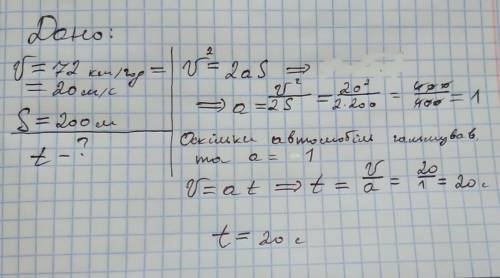 Дано:
V = 72 км/год =
= 20 м/с
S = 200 м
t - ?
V² = 2aS ⇒
⇒ a = V²/2S = 20²/2·200 = 400/400 = 1
Оскільки автомобіль гальмував,
то a = 1
V = at ⇒ t = V/a = 20/1 = 20 с
t = 20 с